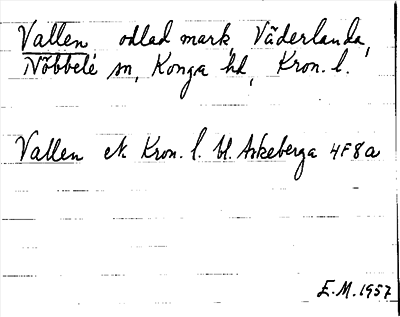 Vallen, odlad mark, Väderlanda,
Nöbbelé sn, Konga hd, Kron. l.
Vallen ek Kron. l. bl. Askeberga 4F8a
E.M. 1957